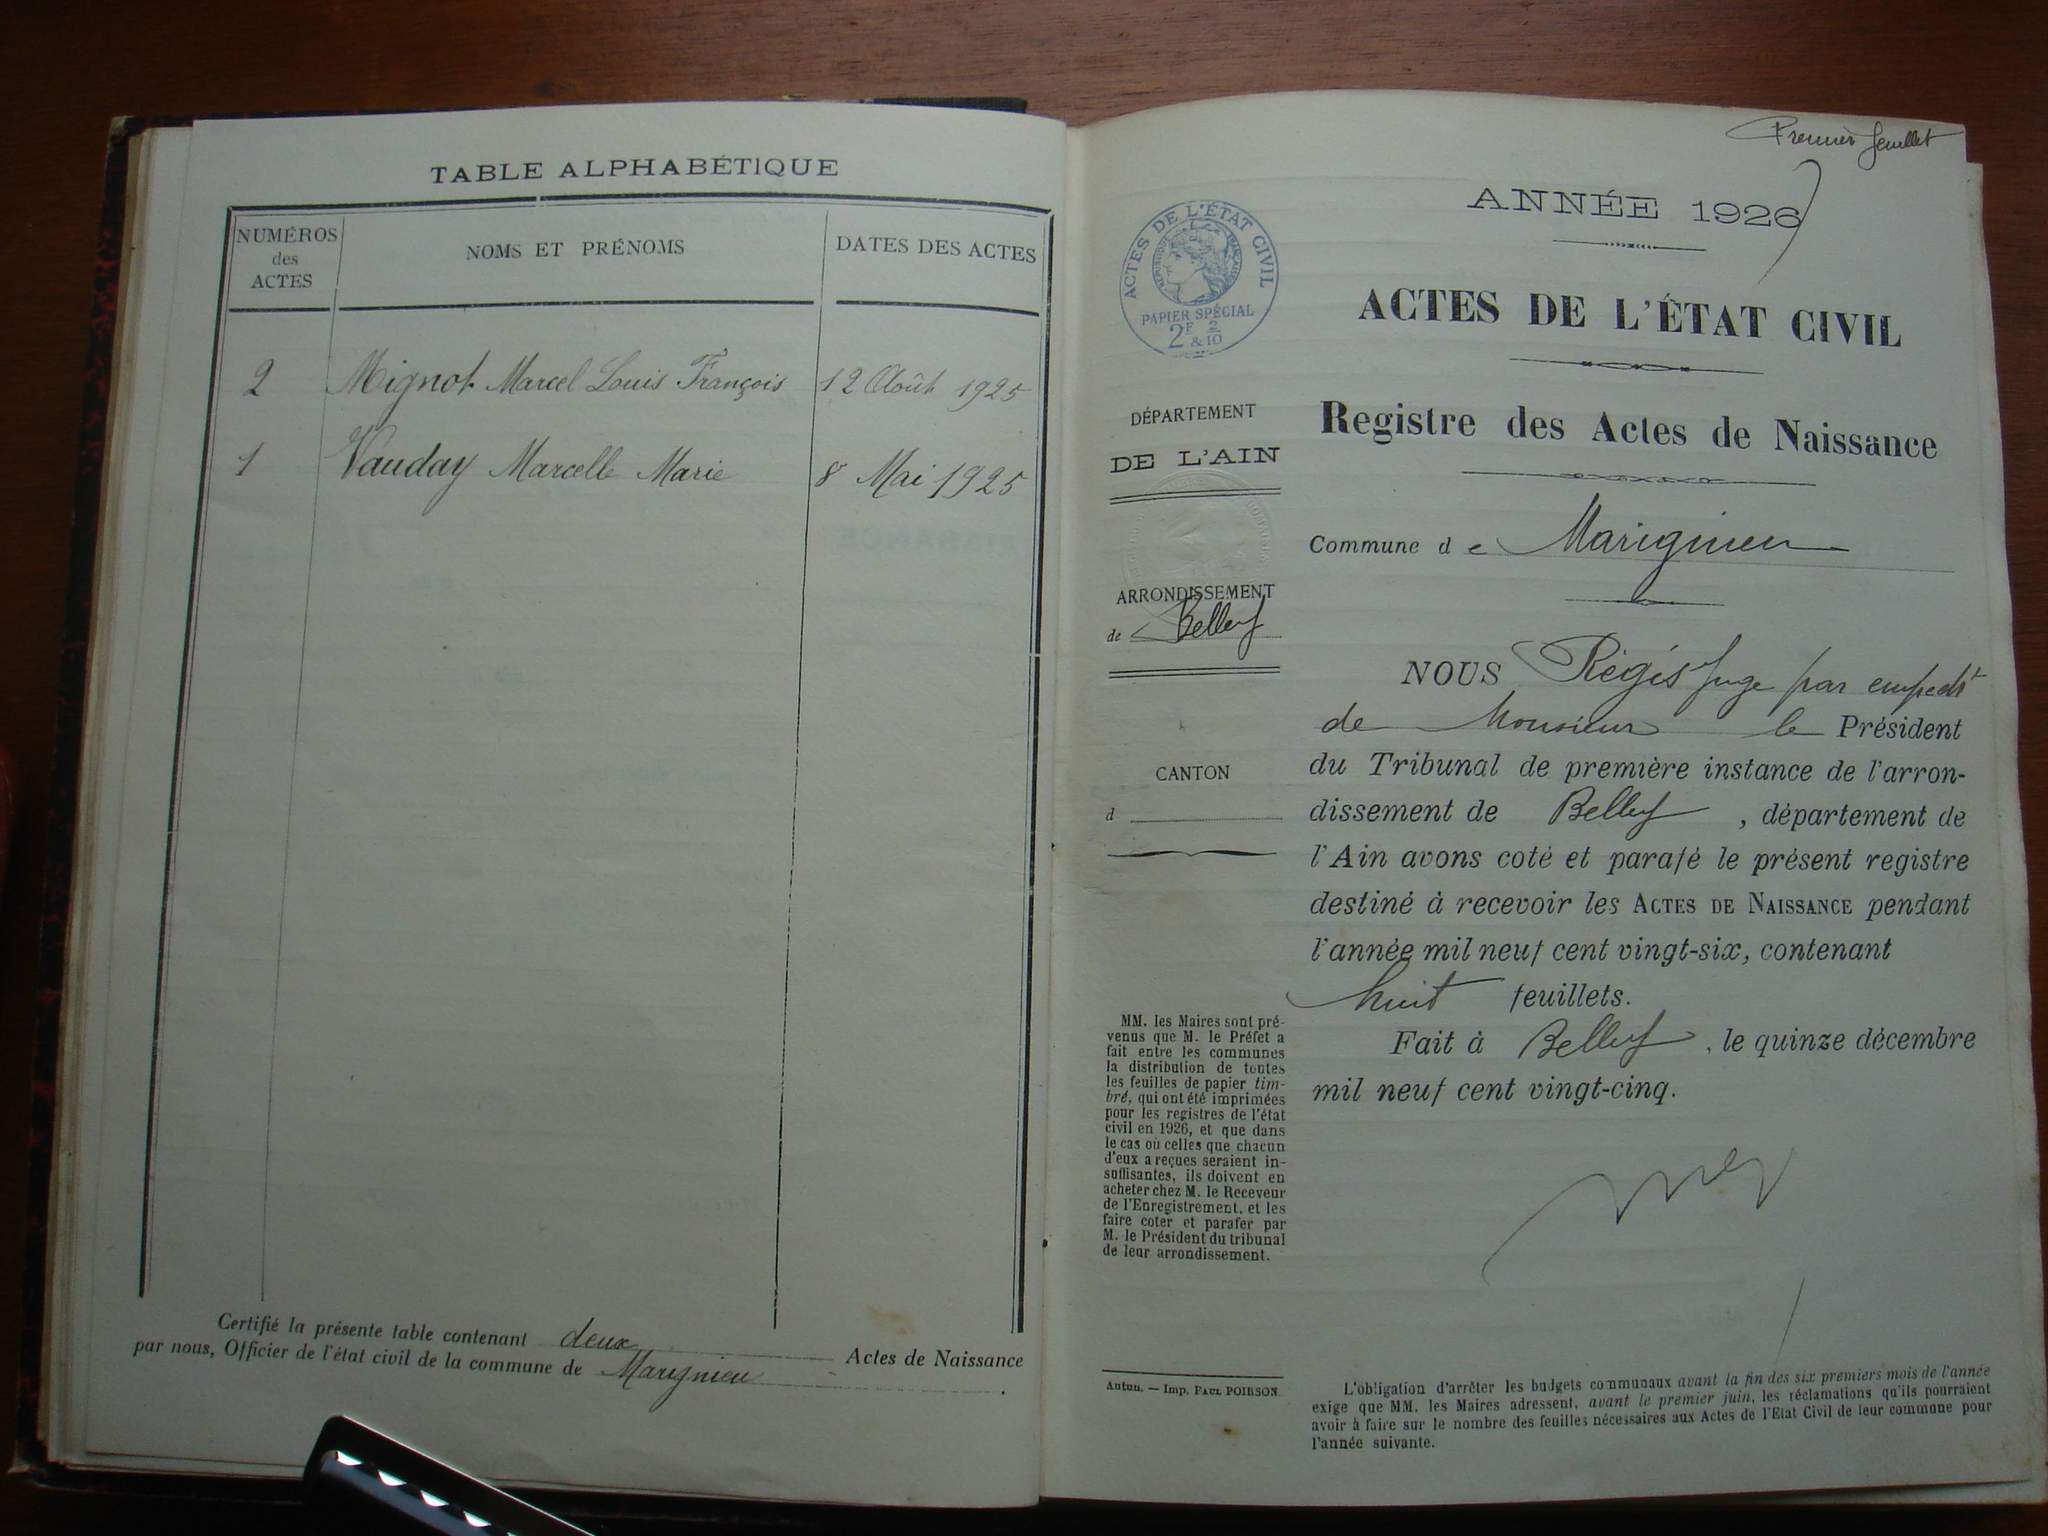 TABLE ALPHABÉTIQUE
NUMÉROS
des
ACTES
NOMS ET PRÉNOMS
DATES DES ACTES
2 Mignot Marcel Louis François 12 Août 1925
1 Vauday Marcelle Marie 8 Mai 1925
Certifié la présente table contenant deux Actes de Naissance
par nous, Officier de l'état civil de la commune de Marignieu.
Premier feuillet
ANNÉE 1926
ACTES DE L'ÉTAT CIVIL
RÉPUBLIQUE FRANÇAISE
PAPIER SPÉCIAL
2F & 2/10
ACTES DE L'ÉTAT CIVIL
Registre des Actes de Naissance
Commune de Marignieu
DÉPARTEMENT
DE L'AIN
ARRONDISSEMENT
de Belley
CANTON
d
NOUS Régis juge par empedt
de Monsieur le Président
du Tribunal de première instance de l'arron-
dissement de Belley, département de
l'Ain avons coté et parafé le présent registre
destiné à recevoir les ACTES DE NAISSANCE pendant
l'année mil neuf cent vingt-six, contenant
huit feuillets.
Fait à Belley, le quinze décembre
mil neuf cent vingt-cinq.
MM. les Maires sont pré-
venus que M. le Préfet a
fait entre les communes
la distribution de toutes
les feuilles de papier tim-
bré, qui ont été imprimées
pour les registres de l'état
civil en 1926, et que dans
le cas où celles que chacun
d'eux a reçues seraient in-
suffisantes, ils doivent en
acheter chez M. le Receveur
de l'Enregistrement, et les
faire coter et parafer par
M. le Président du tribunal
de leur arrondissement.
Autun. — Imp. PAUL POIRSON.
L'obligation d'arrêter les budgets communaux avant la fin des six premiers mois de l'année
exige que MM. les Maires adressent, avant le premier juin, les réclamations qu'ils pourraient
avoir à faire sur le nombre des feuilles nécessaires aux Actes de l'Etat Civil de leur commune pour
l'année suivante.